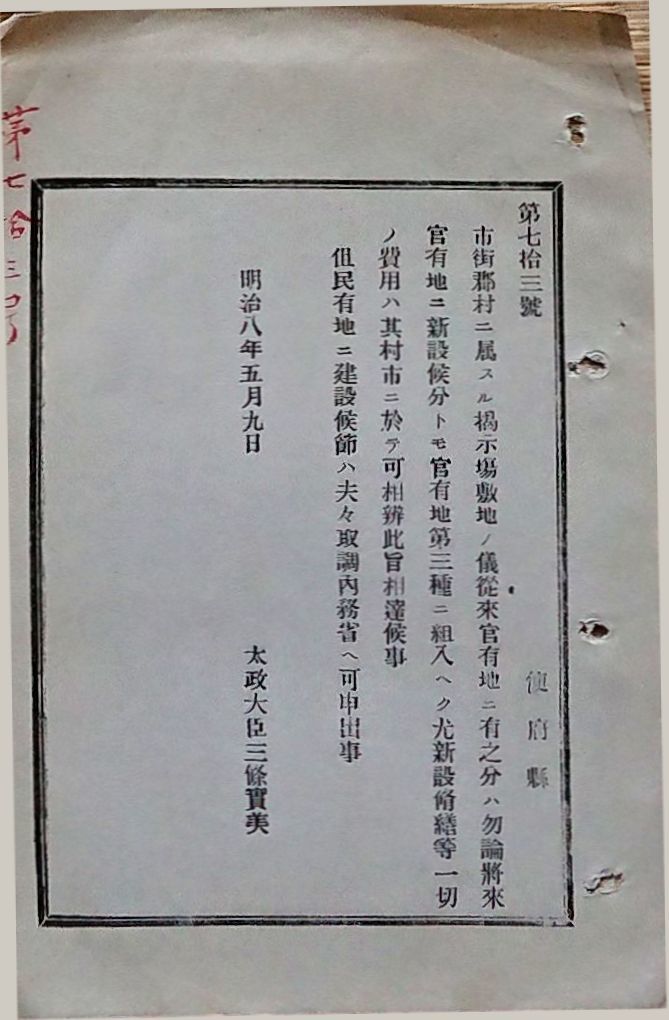 第七拾三號
使府縣
市街郡村ニ属スル揭示塲敷地ノ儀從來官有地ニ有之分ハ勿論將來
官有地ニ新設候分トモ官有地第三種ニ組入ヘク尤新設脩繕等一切
ノ費用ハ其村市ニ於テ可相辨此旨相達候事
伹民有地ニ建設候節ハ夫々取調內務省ヘ可申出事
明治八年五月九日
太政大臣三條實美
第七拾三号